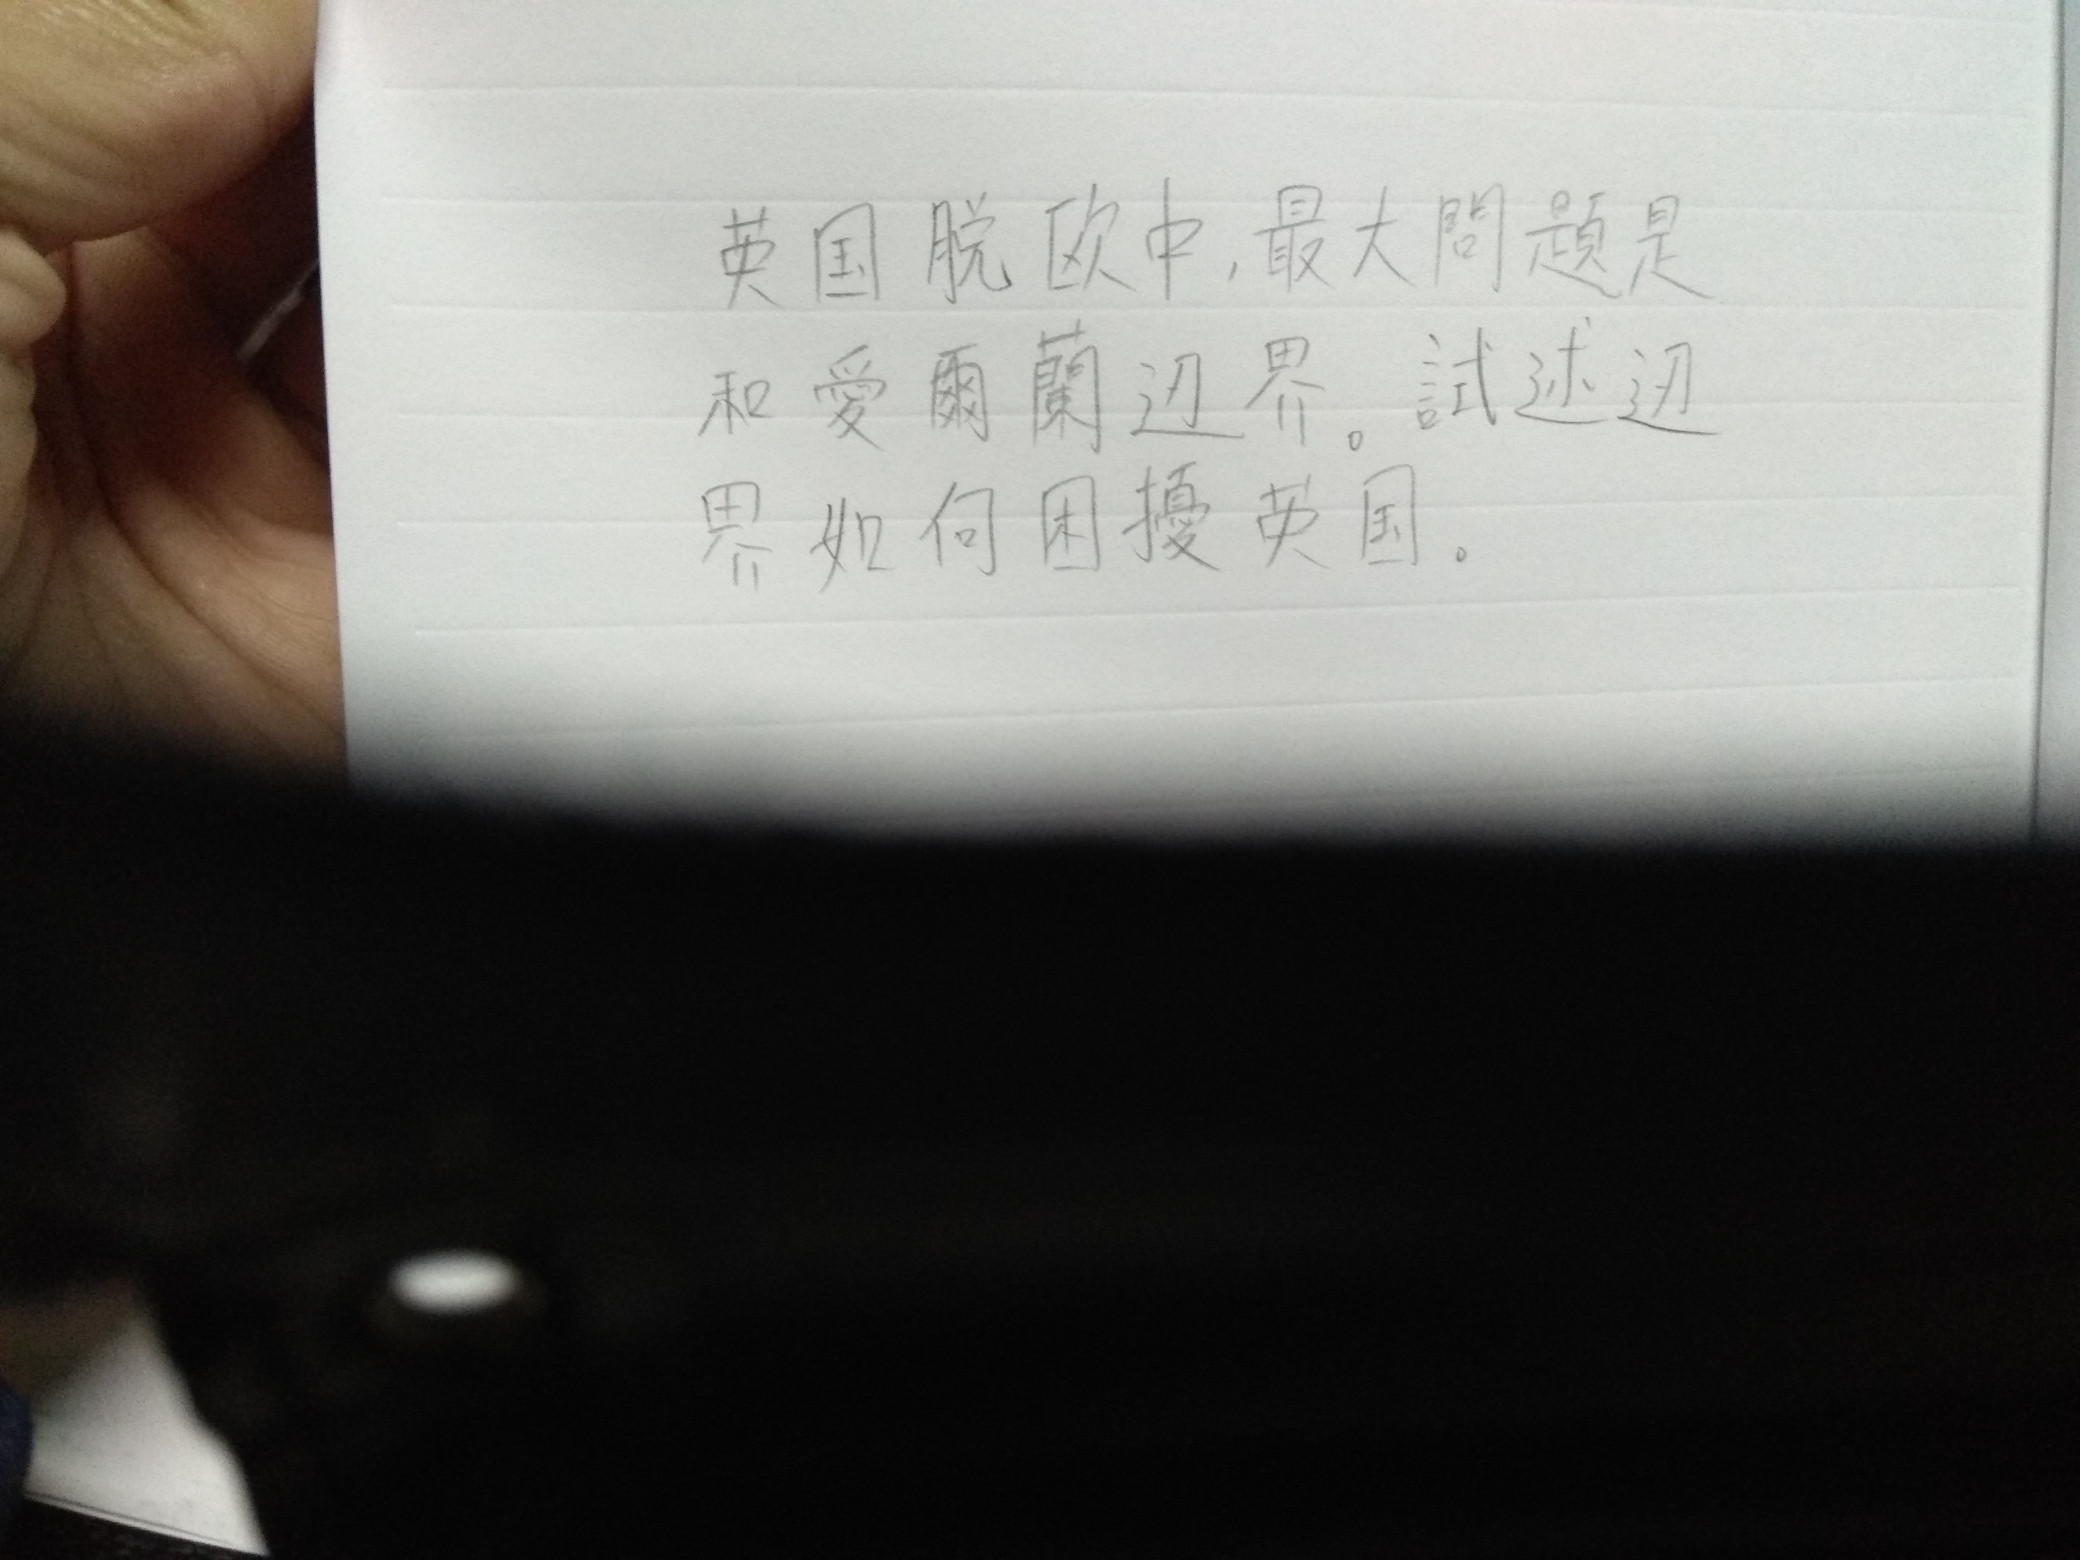 英国脱欧中,最大問題是
和愛爾蘭边界。試述边
界如何困擾英国。